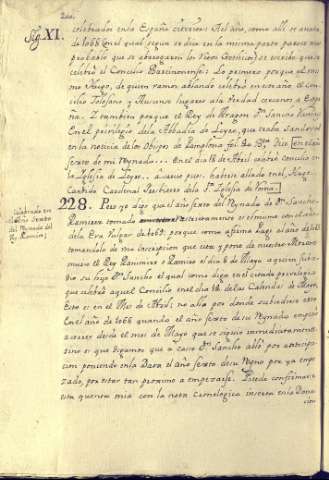 Sig. XI.
celebrados en la España citerior: Al año, como alli se anota
de 1068 con el qual segun se dice en la misma parte parece mas
probable que se abrogaron los Ritos Gothicos; se escribe que se
celebró el Concilio Barcinonense. Lo primero porque el
mo Hugo, de quien vamos ablando celebró en ese año el con
cilio Tolosano, y Auscino lugares ala verdad cercanos a Espa
ña. I tambien porque el Rey de Aragon Dn. Sancho Ramirez
En el privilegio dela Abbadia de Loyre, que traha Sandoval
en la noticia de los Obispos de Pamplona fol. Dice en el año
sexto de mi Reynado... En el dia 18 de Abril celebró concilio en
la Iglesia de Leyre.. a que pues habiese aliado en el Hugo
Candido Cardenal Presbitero dela Sta. Iglesia de Roma.
celebrado en
el año sexto
del Reynado del
Rey Ramiro;
228. Pues yo digo que el año sexto del Reynado de Dn. Sancho
Ramirez tomado es el mismo con el año
dela Era Vulgar de 1068: porque como afirma Pagi al año de 1063
tomandolo de una inscripcion que cita y pone de nuestro Moret
murio el Rey Ramiro o Ramiro el dia 8 de Mayo a quien subce
dio su hijo Dn. Sancho el qual como digo en el citado privilegio
que celebró aquel Concilio en el dia 14 de las Calendas de Mayo
Esto es en el Mes de Abril; no alló por donde subcediera esto
En el año de 1068 quando el año sexto de su Reynado empezó
a correr desde el mes de Mayo que se siguió inmediatamente
sino es que digamos que a caso Dn. Sancho alló, por anticipa
cion poniendo en la Data el año sexto de su Reyno por ya empe
zado, por estar tan proximo a empezarse. Puede confirmarse
esta querenia mia con la nota Cronologica inserta en la Dona
cion